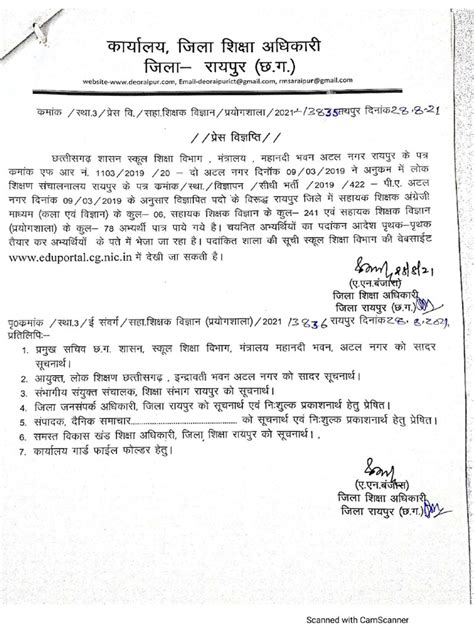 कार्यालय, जिला शिक्षा अधिकारी
जिला– रायपुर (छ.ग.)
website-www.deoraipur.com, Email-deoraipurict@gmail.com, rmsaraipur@gmail.com
कमांक /स्था.3/प्रेस वि./सहा.शिक्षक विज्ञान/प्रयोगशाला/2021 13835 रायपुर दिनांक 28.8.21
//प्रेस विज्ञप्ति//
छत्तीसगढ़ शासन स्कूल शिक्षा विभाग, मंत्रालय, महानदी भवन अटल नगर रायपुर के पत्र
कमांक एफ आर नं. 1103/2019/20 – दो अटल नगर दिनॉक 09/03/2019 ने अनुकम में लोक
शिक्षण संचालनालय रायपुर के पत्र कमांक/स्था./विज्ञापन/सीधी भर्ती/2019/422 – पी.ए. अटल
नगर दिनांक 09/03/2019 के अनुसार विज्ञापित पदो के विरूद्ध रायपुर जिले में सहायक शिक्षक अंग्रेजी
माध्यम (कला एवं विज्ञान) के कुल– 06, सहायक शिक्षक विज्ञान के कुल– 241 एवं सहायक शिक्षक विज्ञान
(प्रयोगशाला) के कुल– 78 अभ्यर्थी पात्र पाये गये है। चयनित अभ्यर्थियों का पदांकन आदेश पृथक–पृथक
तैयार कर अभ्यर्थियों के पते में भेजा जा रहा है। पदांकित शाला की सूची स्कूल शिक्षा विभाग की वेबसाईट
www.eduportal.cg.nic.in में देखी जा सकती है।
28/8/21
(ए.एन.बंजारा)
जिला शिक्षा अधिकारी
जिला रायपुर (छ.ग.)
पृ0कमांक /स्था.3/ई संवर्ग/सहा.शिक्षक विज्ञान (प्रयोगशाला)/2021 13836 रायपुर दिनांक 28.8.2021
प्रतिलिपिः–
1. प्रमुख सचिव छ.ग. शासन, स्कूल शिक्षा विभाग, मंत्रालय महानदी भवन, अटल नगर को सादर
सूचनार्थ।
2. आयुक्त, लोक शिक्षण छत्तीसगढ़, इन्द्रावती भवन अटल नगर को सादर सूचनार्थ।
3. संभागीय संयुक्त संचालक, शिक्षा संभाग रायपुर को सूचनार्थ।
4. जिला जनसंपर्क अधिकारी, जिला रायपुर को सूचनार्थ एवं निःशुल्क प्रकाशनार्थ हेतु प्रेषित।
5. संपादक, दैनिक समाचार.............................. को सूचनार्थ एवं निःशुल्क प्रकाशनार्थ हेतु प्रेषित।
6. समस्त विकास खंड शिक्षा अधिकारी, जिला शिक्षा रायपुर को सूचनार्थ।
7. कार्यालय गार्ड फाईल फोल्डर हेतु।
(ए.एन.बंजारा)
जिला शिक्षा अधिकारी
जिला रायपुर (छ.ग.)
Scanned with CamScanner